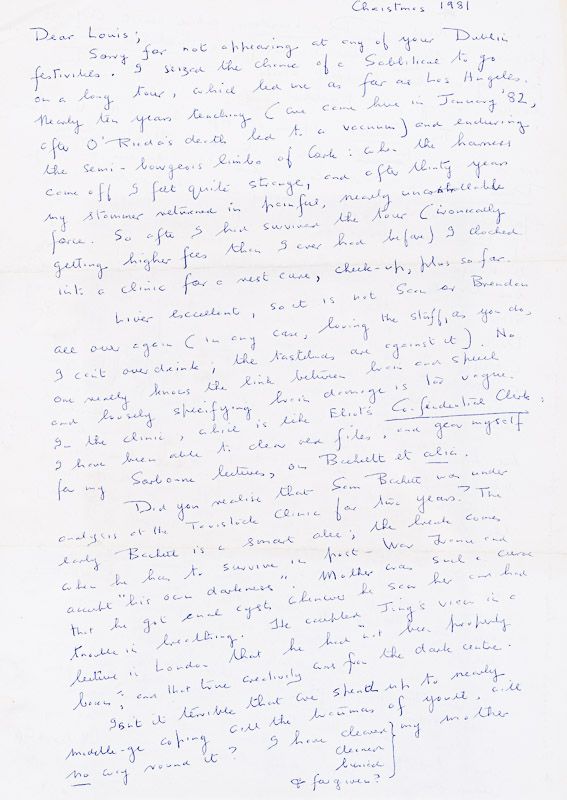 Christmas 1981
Dear Louis;
Sorry for not appearing at any of your Dublin
festivities. I seized the chance of a Sabbatical to go
on a long tour, which led me as far as Los Angeles.
Nearly ten years teaching (we came here in January '82,
after O'Riada's death led to a vacuum) and enduring
the semi-bourgeois limbo of Cork: when the harness
came off I felt quite strange, and after thirty years
my stammer returned in painful, nearly uncontrollable
force. So after I had survived the tour (ironically
getting higher fees than I ever had before) I clocked
into a clinic for a rest cure, check-up, plus so far.
Liver excellent, so it is not Sean or Brendan
all over again (in any case, loving the stuff, as you do,
I can't overdrink; the tastebuds are against it). No
one really knows the link between brain and speech
and loosely specifying brain damage is too vague.
In the clinic, which is like Eliot's Confidential Clerk:
I have been able to clear old files, and gear myself
for my Sorbonne lectures, on Beckett et alia.
Did you realise that Sam Beckett was under
analysis at the Tavistock Clinic for two years? The
early Beckett is a smart alec; the break comes
when he has to survive in post-War France and
accept "his own darkness". Mother was such a curse
that he got anal cysts whenever he saw her and had
trouble in breathing. He accepted Jung's view in a
lecture in London that he had "not been properly
born", and that true creativity was from the dark centre.
Isn't it terrible that we spend up to nearly
middle-age coping with the traumas of youth, with
no way round it? I have cleaner my mother
cleaner
buried
& forgiven?